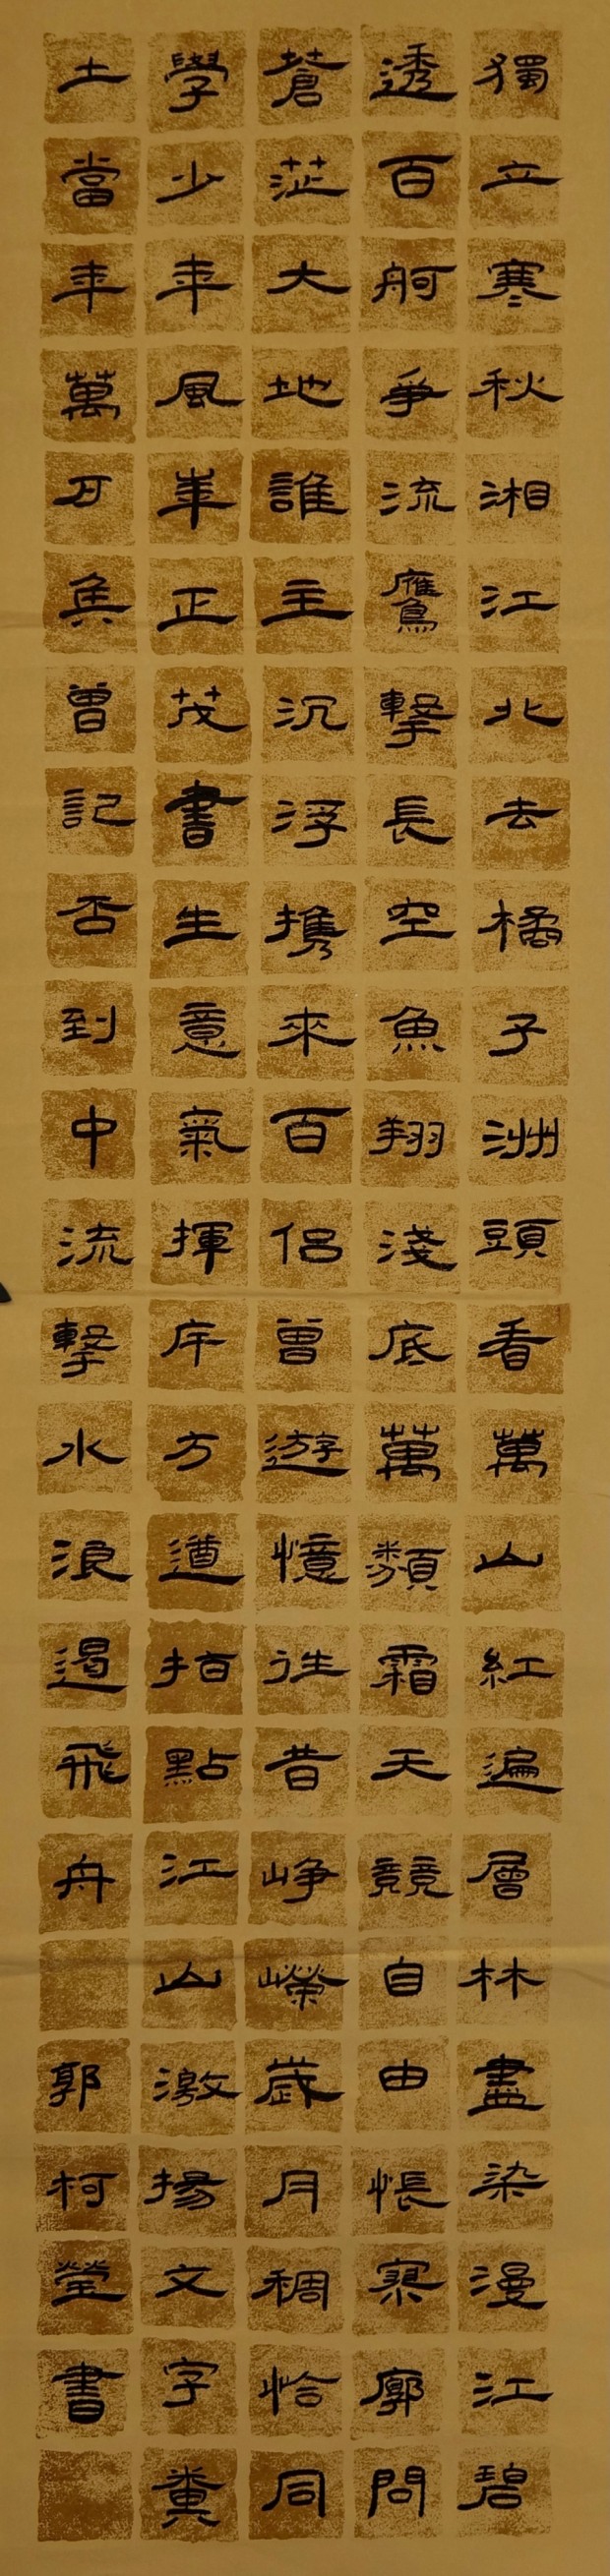 獨立寒秋湘江北去橘子洲頭看萬山紅遍層林盡染漫江碧
透百舸爭流鷹擊長空魚翔淺底萬類霜天競自由悵寥廓問
蒼茫大地誰主沉浮携來百侶曾遊憶往昔崢嶸歲月稠恰同
學少年風華正茂書生意氣揮斥方遒指點江山激揚文字糞
土當年萬戶侯曾記否到中流擊水浪遏飛舟 郭柯瑩書